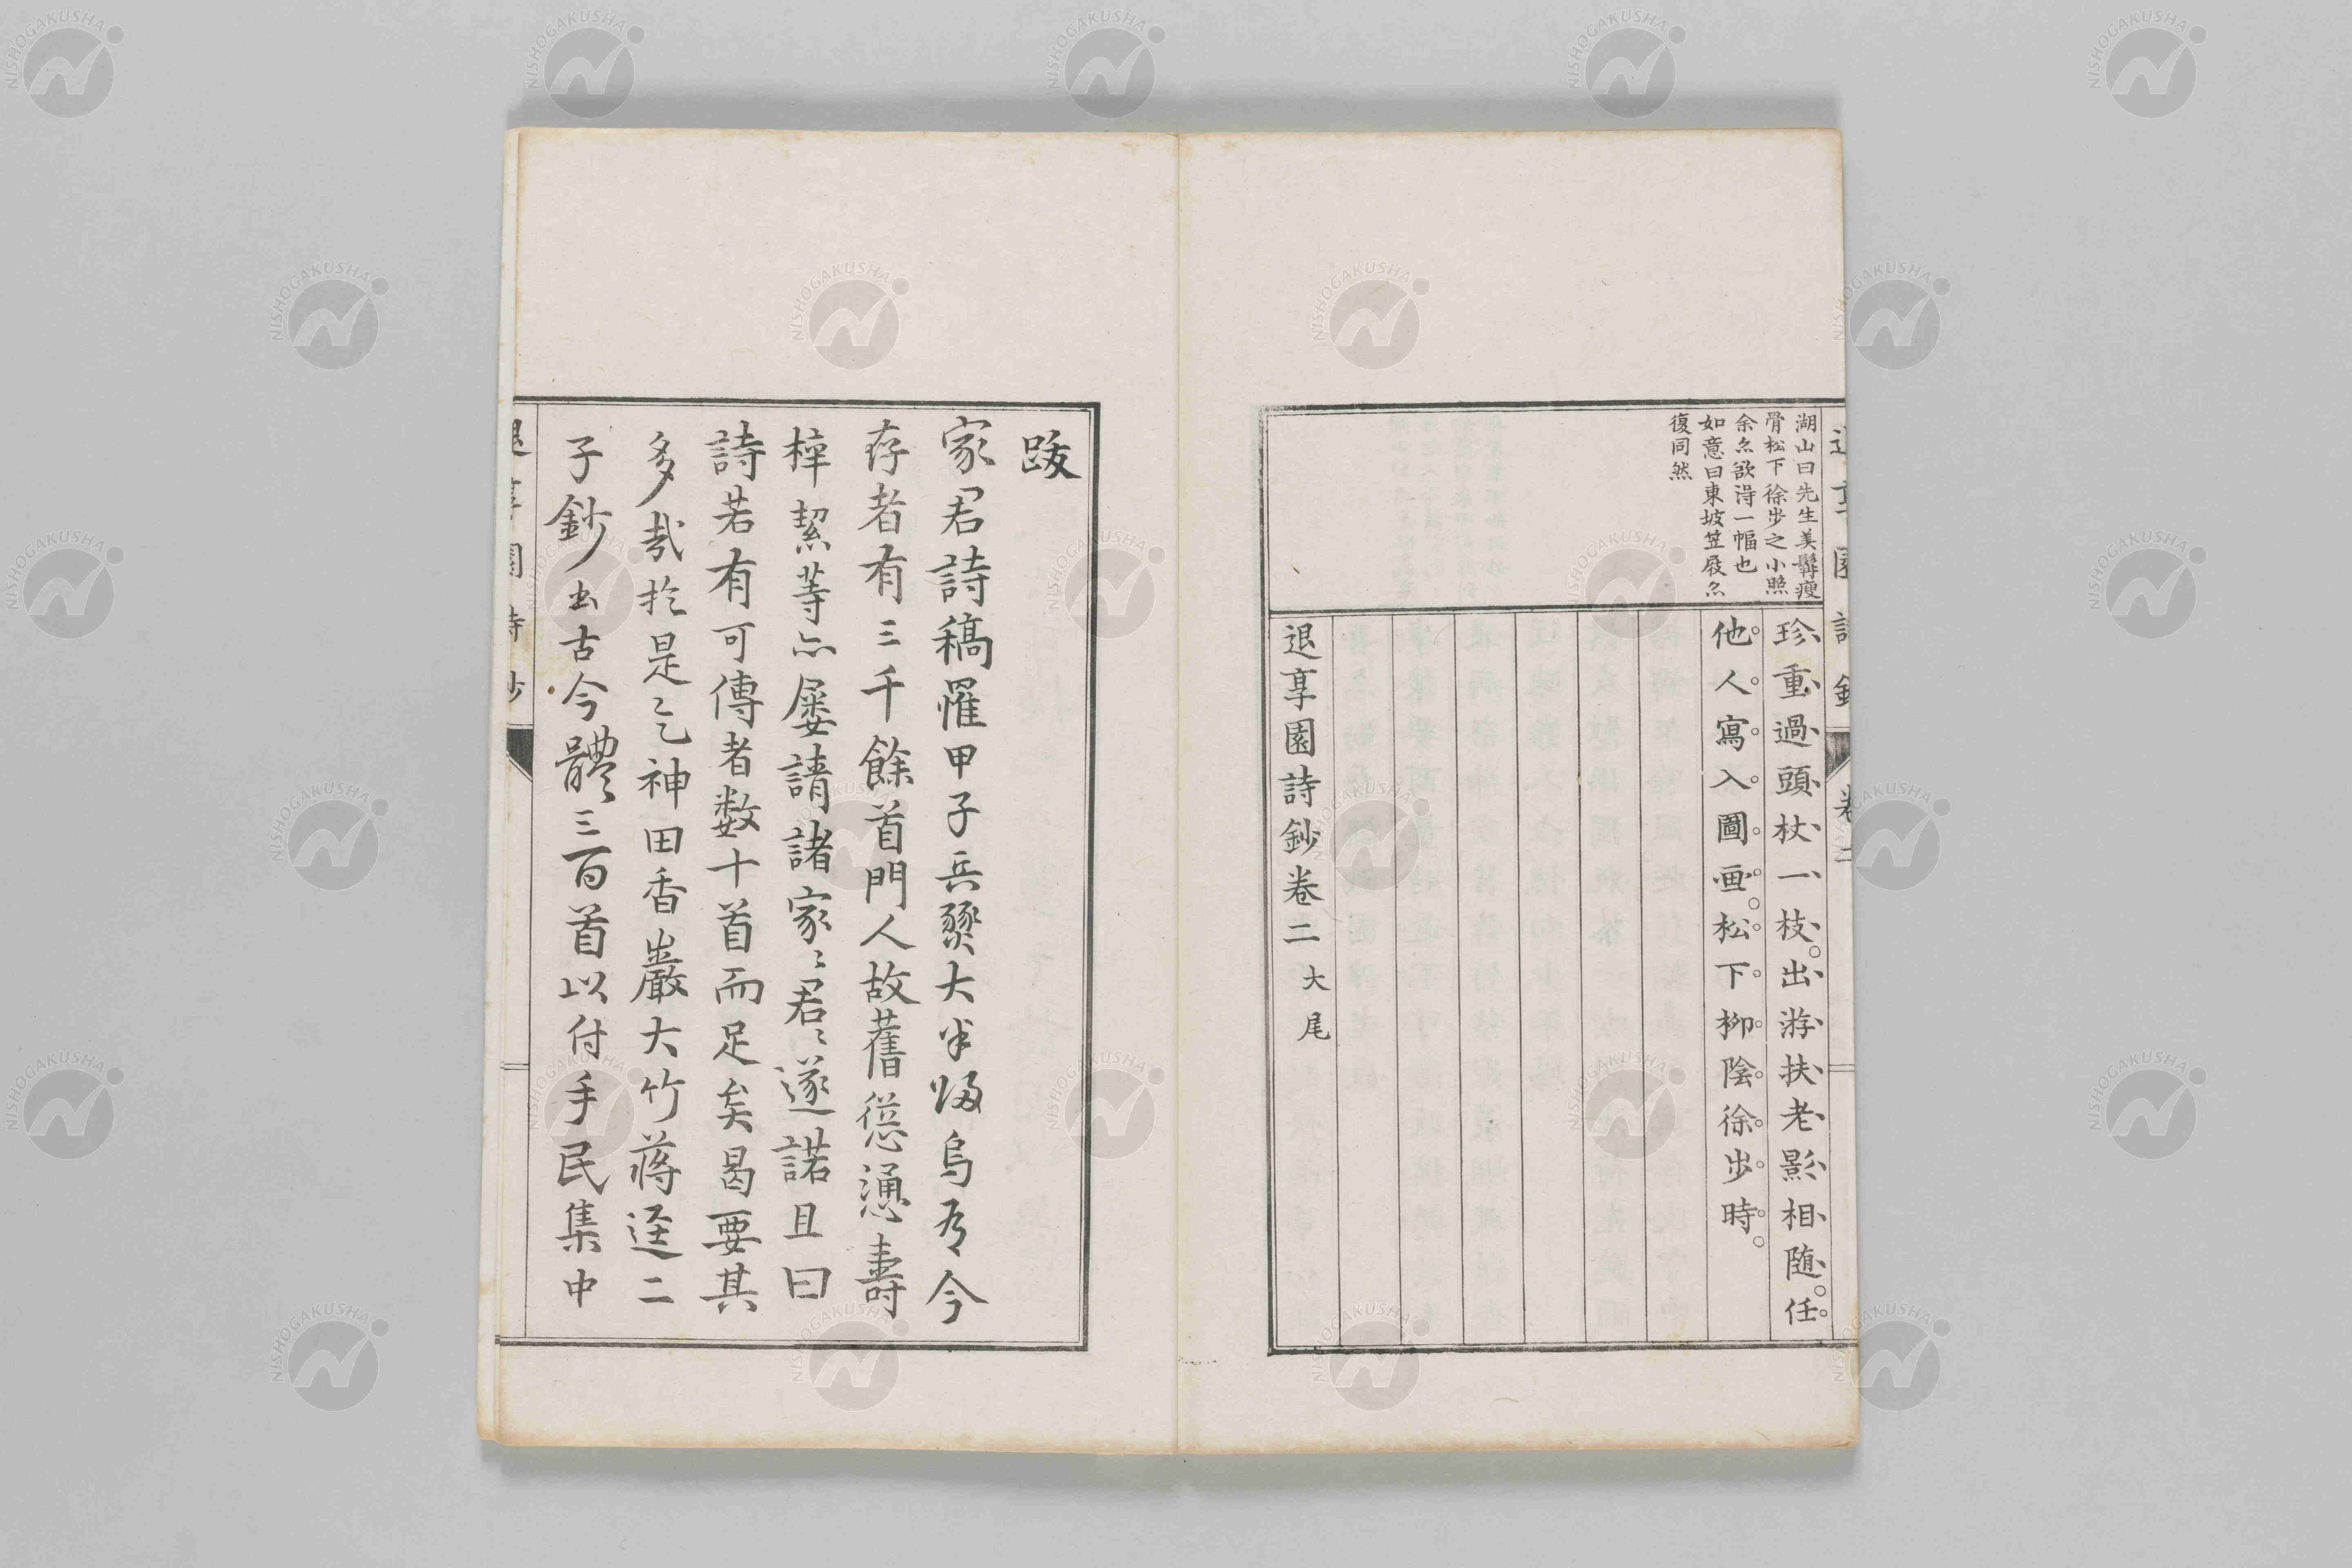 退享園詩鈔 卷二
湖山曰先生美髯瘦
骨松下徐步之小照
余亦欲淂一幅也
如意曰東坡笠屐亦
復同然
珍重過頭杖一枝。出游扶老影相随。任
他人寫入圖画。松下柳陰徐步時。
退享園詩鈔卷二 大尾
跋
家君詩稿罹甲子兵燹大半帰烏有今
存者有三千餘首門人故舊慫慂壽
梓絜等亦屡請諸家〻君〻遂諾且曰
詩若有可傳者数十首而足矣曷要其
多哉於是乞神田香巖大竹蒋逕二
子鈔出古今體三百首以付手民集中
退享園詩鈔